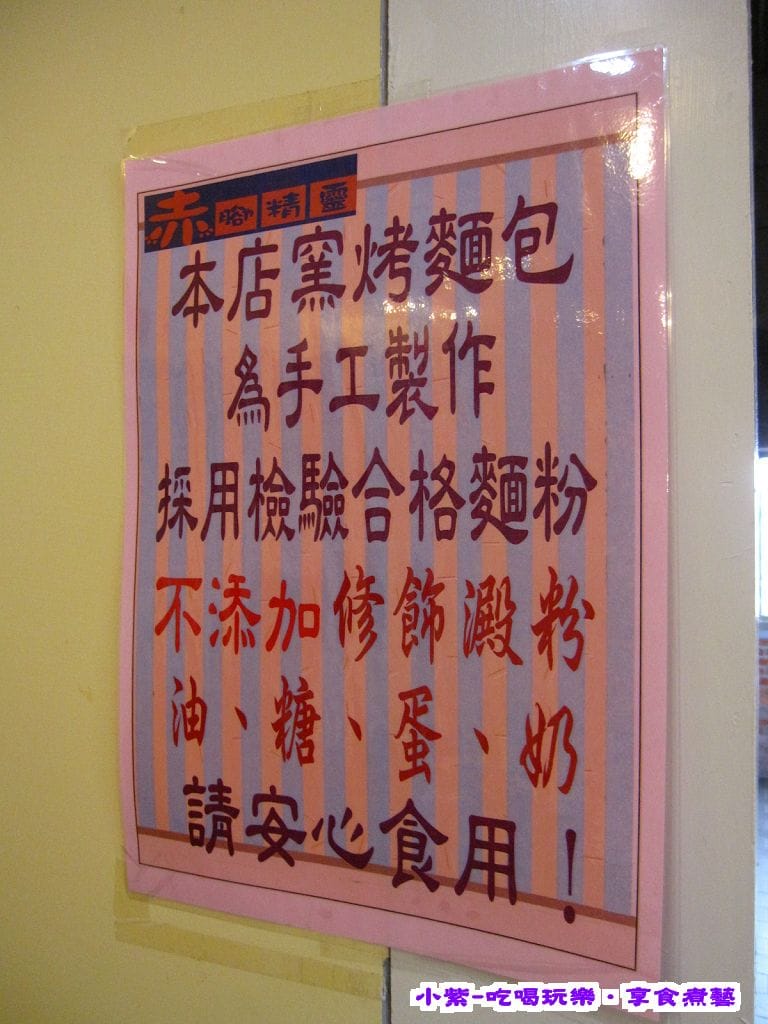 赤腳精靈
本店窯烤麵包
為手工製作
採用檢驗合格麵粉
不添加修飾澱粉
油、糖、蛋、奶
請安心食用!
小紫-吃喝玩樂·享食煮藝